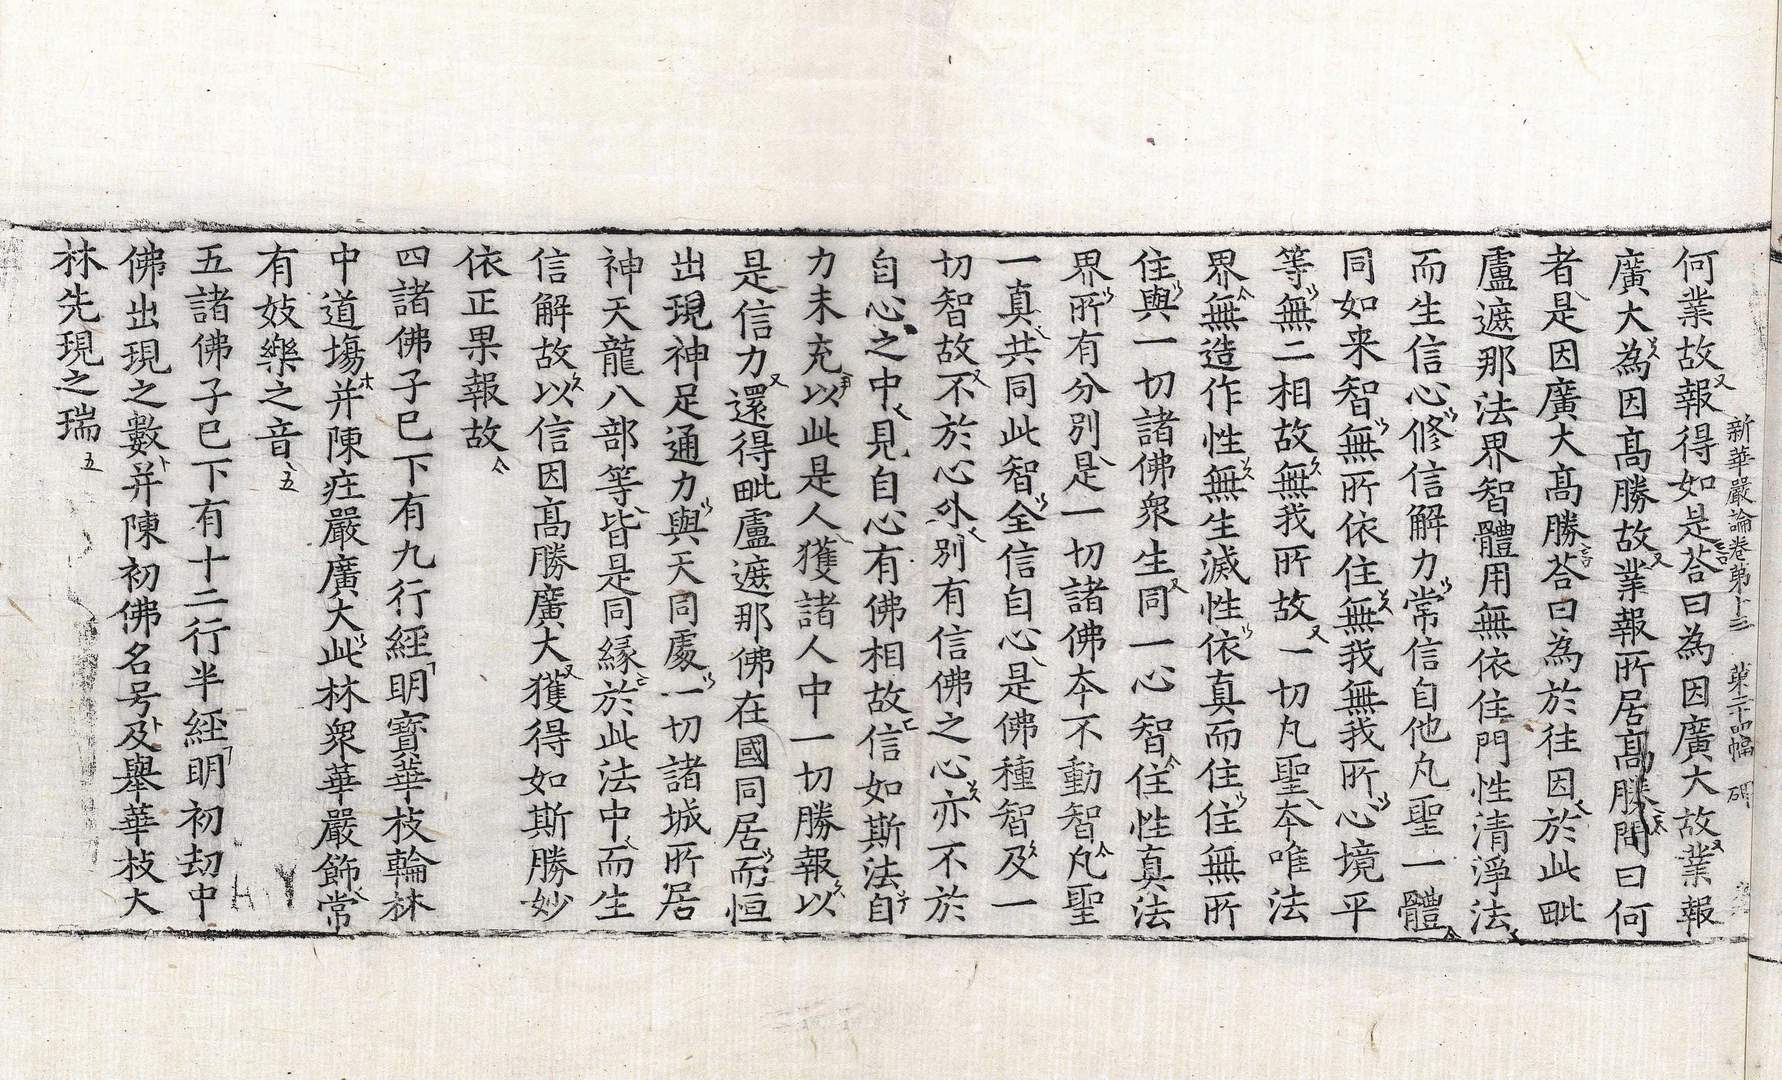 新華嚴論卷第十三 第二十四幅
何業故報得如是荅曰為因廣大故業報
廣大為因髙勝故業報所居髙勝問曰何
者是因廣大髙勝荅曰為於往因於此毗
盧遮那法界智體用無依住門性清淨法
而生信心修信解力常信自他凡聖一體
同如来智無所依住無我無我所心境平
等無二相故無我所故一切凡聖夲唯法
界無造作性無生滅性依真而住住無所
住與一切諸佛衆生同一心智住性真法
界所有分別是一切諸佛夲不動智凡聖
一真共同此智全信自心是佛種智及一
切智故不於心外別有信佛之心亦不於
自心之中見自心有佛相故信如斯法自
力未充以此是人獲諸人中一切勝報以
是信力還得毗盧遮那佛在國同居而恒
出現神足通力與天同處一切諸城所居
神天龍八部等皆是同緣於此法中而生
信解故以信因髙勝廣大獲得如斯勝妙
依正果報故
四諸佛子巳下有九行經明寶華枝輪林
中道塲并陳庄嚴廣大此林衆華嚴飾常
有妓樂之音
五諸佛子巳下有十二行半經明初刧中
佛出現之數并陳初佛名号及舉華枝大
林先現之瑞